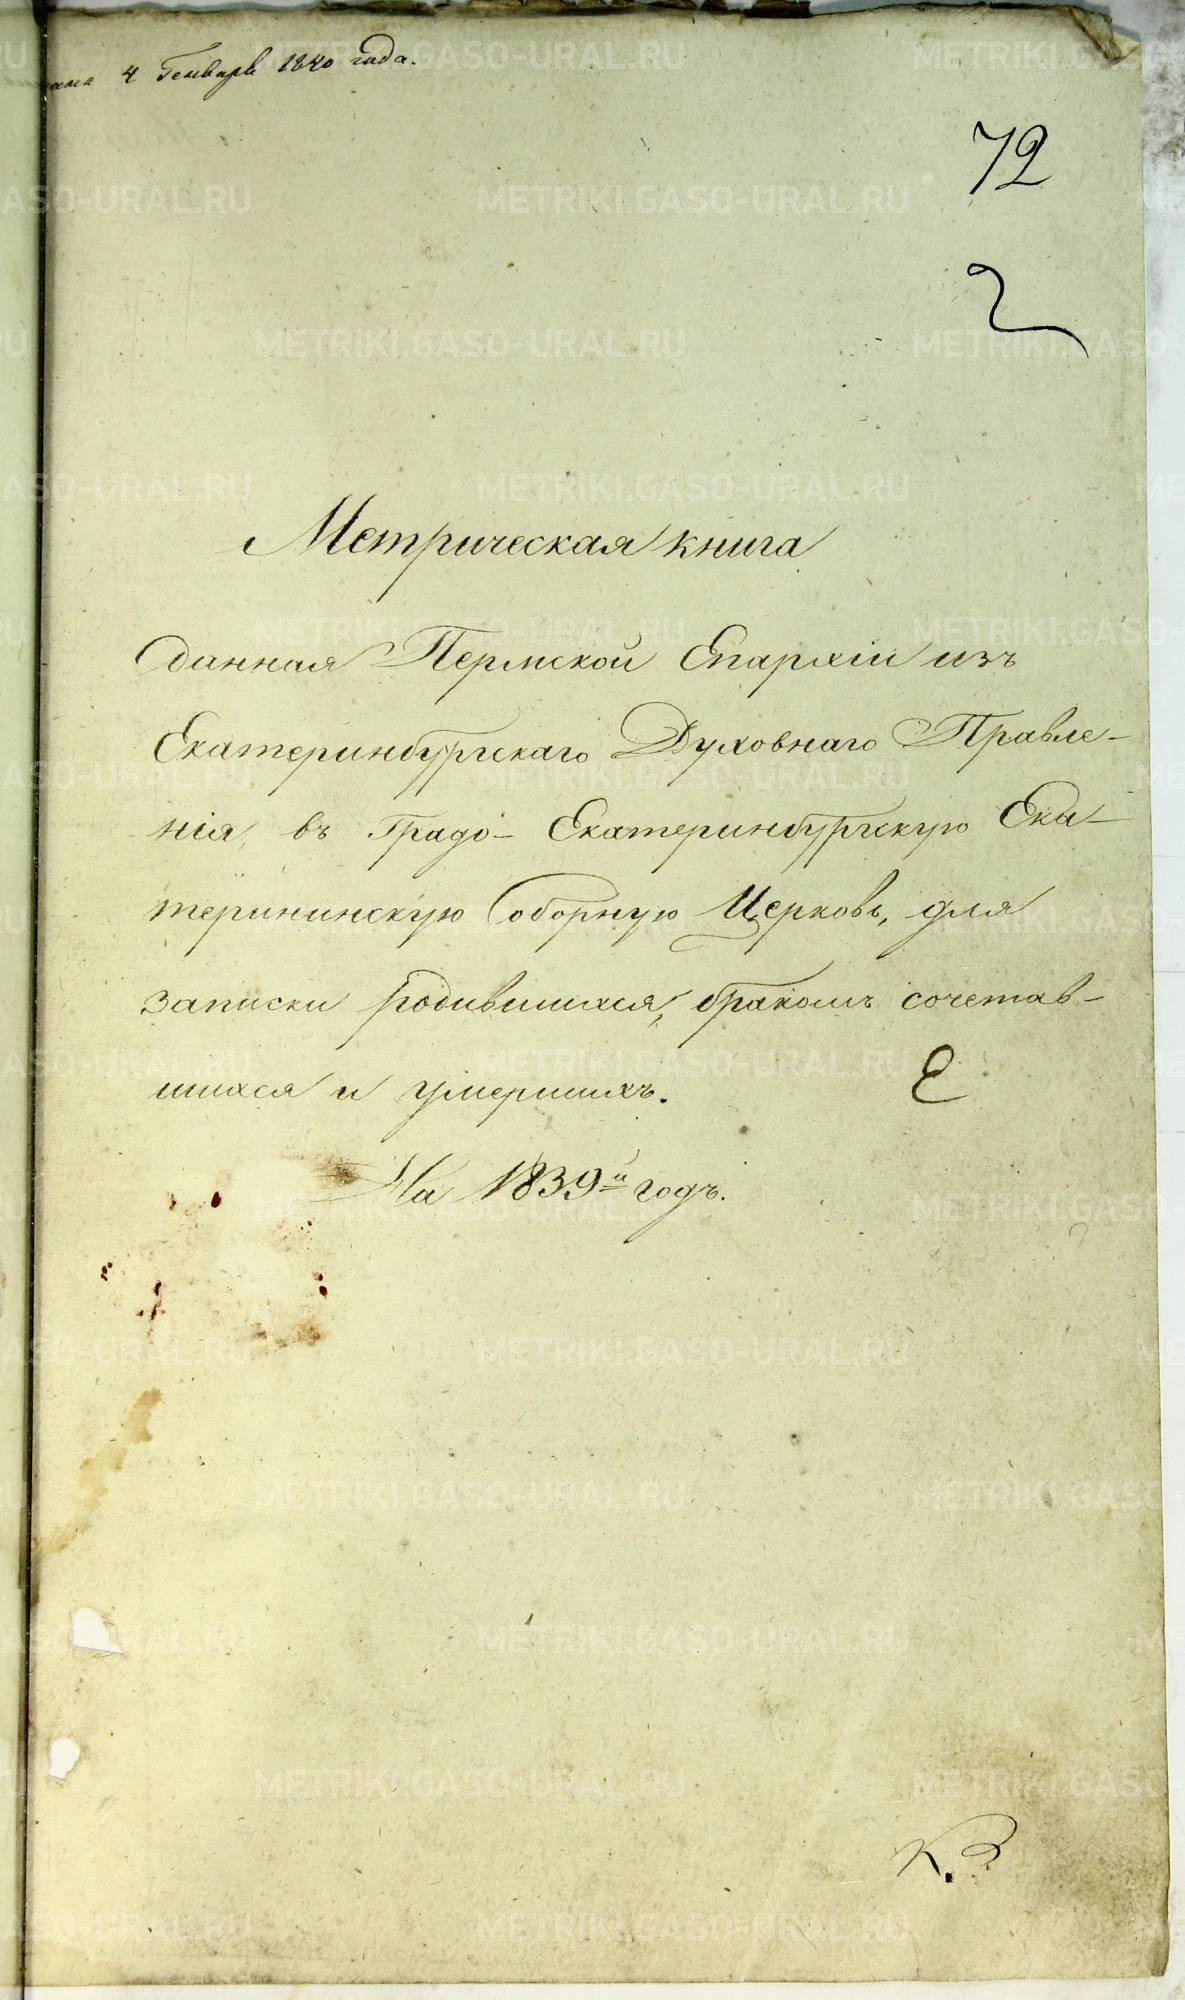 4 Генваря 1840 года.
72
2
Метрическая книга
данная Пермской Епархіи изъ
Екатеринбургскаго Духовнаго Правле-
нія, въ Градо- Екатеринбургскую Ека-
терининскую Соборную Церковь, для
записки родившихся, бракомъ сочетав-
шихся и умершихъ.
Е
На 1839й годъ.
METRIKI.GASO-URAL.RU